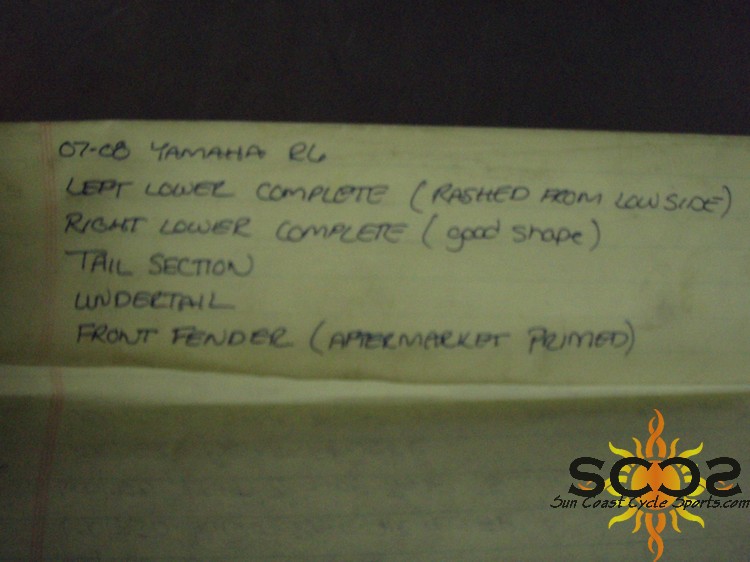 07-08 YAMAHA R6
LEFT LOWER COMPLETE (RASHED FROM LOWSIDE)
RIGHT LOWER COMPLETE (good shape)
TAIL SECTION
UNDERTAIL
FRONT FENDER (AFTERMARKET PRIMED)
SCCS
Sun Coast Cycle Sports.com